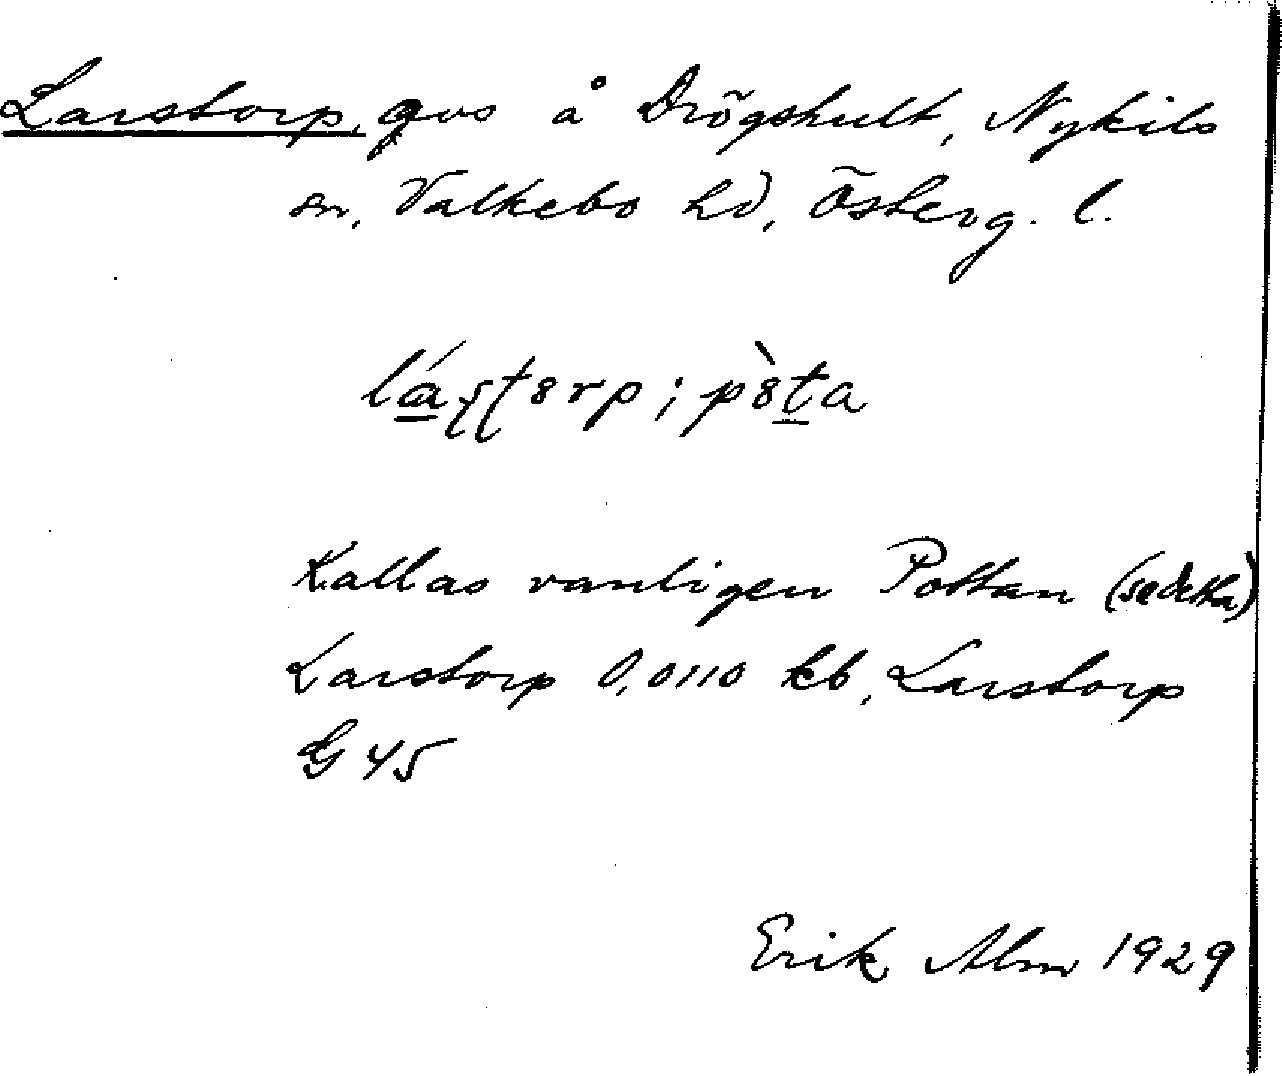 Larstorp, gvs å Drögshult, Nykils
sn, Valkebo hd, Österg. l.
Kallas vanligen Pottan (se detta)
Larstorp 0,0110 kb, Larstorp
G 45
Erik Alm 1929